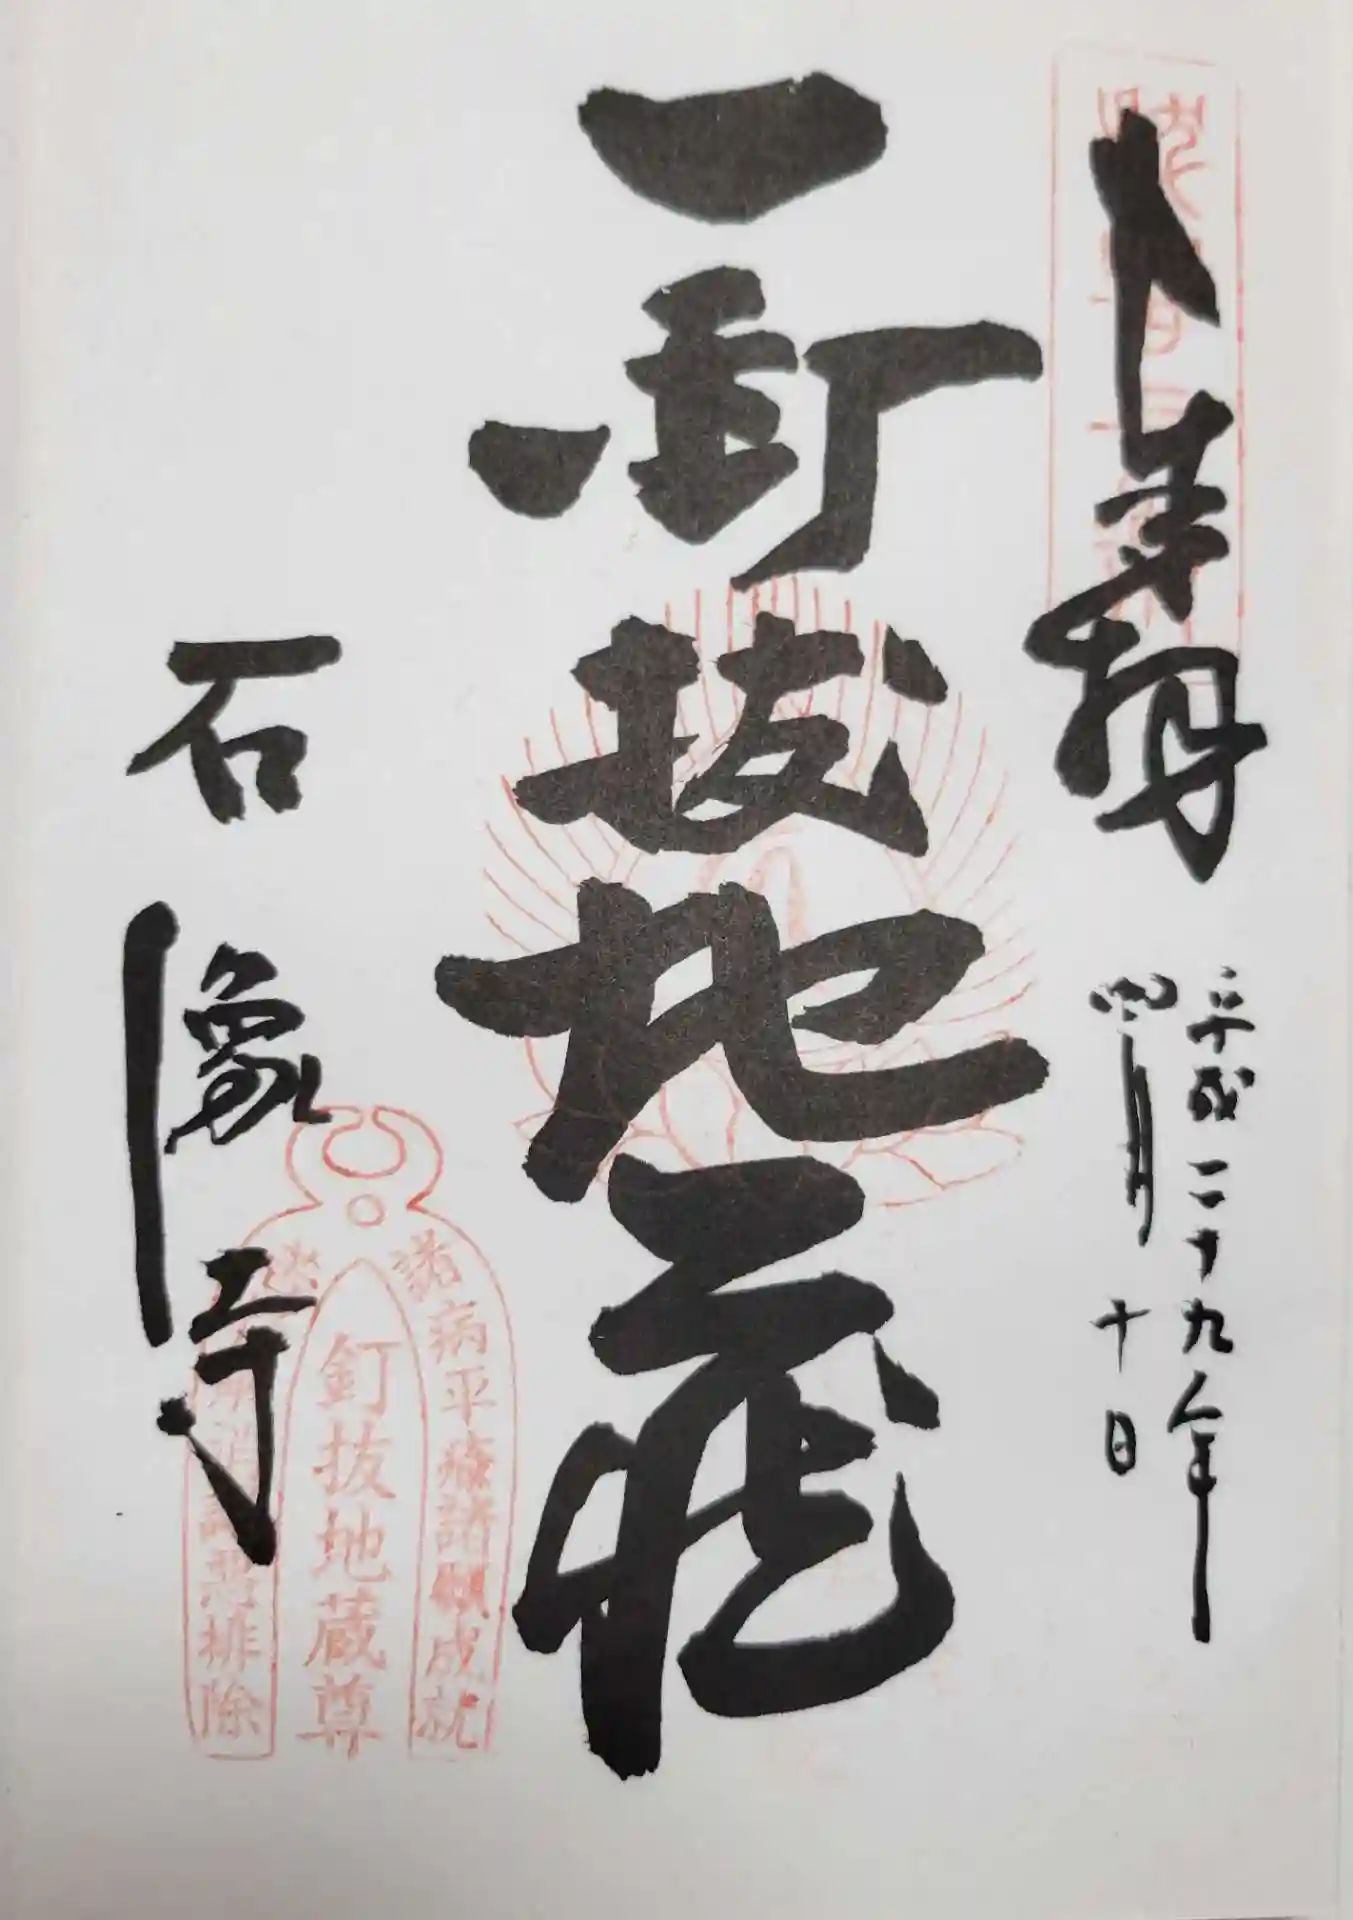 奉拝
平成二十九年
四月十日
釘抜地蔵
石像寺
諸病平癒諸願成就
釘抜地蔵尊
排除